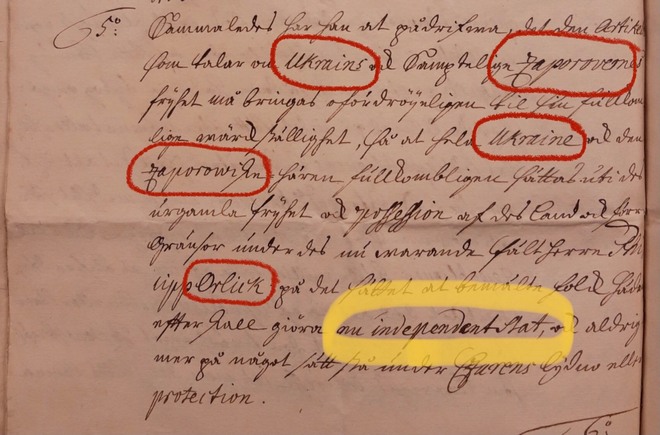 5º:
Sammaledes har han at pådrifwa, det den Artike
som talar om Ukrains och Samptelige Zaporovernes
fryhet må bringas ofördröyeligen til sin fullkom
lige wärckställighet, så at hela Ukraine och den
Zaporowiske hären fullkombligen sättas uti des
urgamla fryhet och possession af des Land och förr
Gräntsor under des nu warande fältherre
lipp Orlick på det sättet at bemälte folck
efter kall giöra en independent stat, och aldrig
mer på något sätt stå under Czarens lydno eller
protection.
6º: